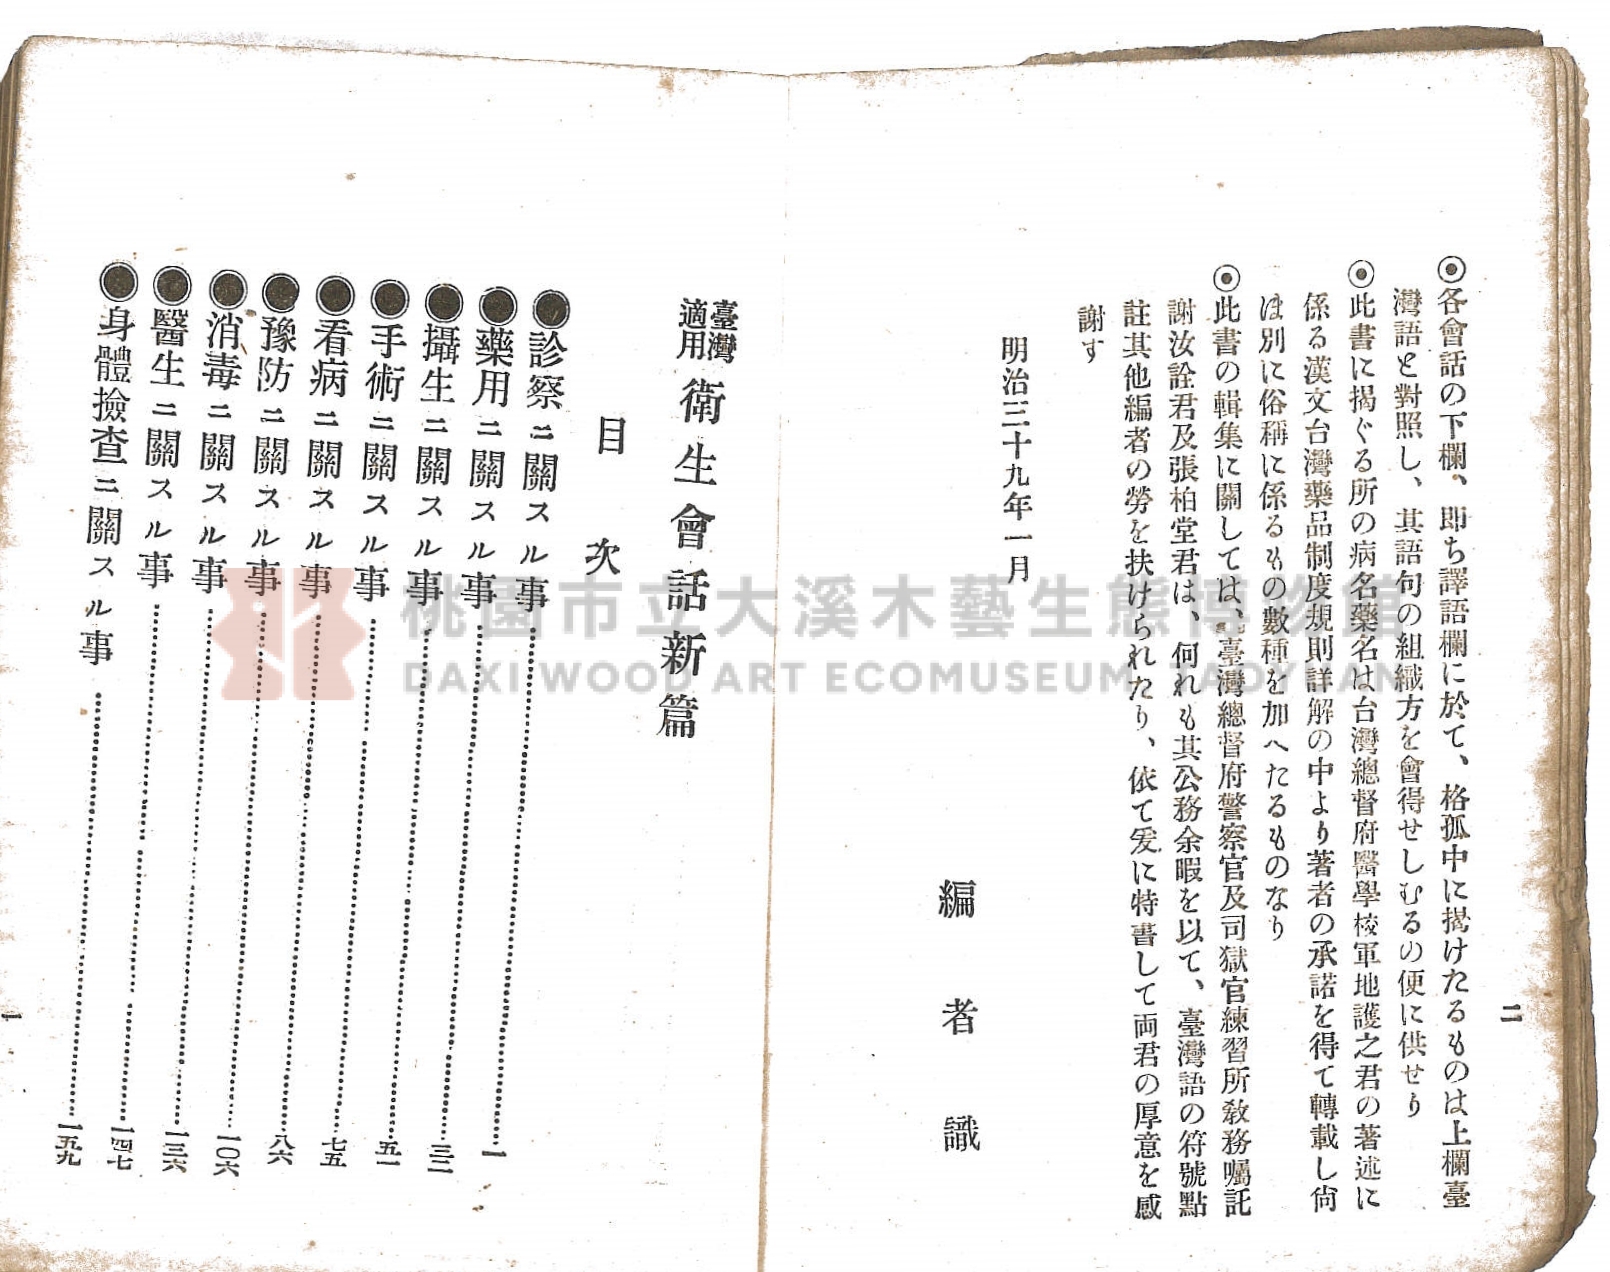 二
◉各會話の下欄、即ち譯語欄に於て、格孤中に揭けたるものは上欄臺
灣語と對照し、其語句の組織方を會得せしむるの便に供せり
◉此書に揭ぐる所の病名藥名は台灣總督府醫學校軍地護之君の著述に
係る漢文台灣藥品制度規則詳解の中より著者の承諾を得て轉載し尙
ほ別に俗稱に係るもの數種を加へたるものなり
◉此書の輯集に關しては、臺灣總督府警察官及司獄官練習所敎務囑託
謝汝詮君及張柏堂君は、何れも其公務余暇を以て、臺灣語の符號點
註其他編者の勞を扶けられたり、依て爰に特書して両君の厚意を感
謝す
明治三十九年一月
編者識
臺灣適用 衛生會話新篇
目次
●診察ニ關スル事……一
●藥用ニ關スル事……
●攝生ニ關スル事……三二
●手術ニ關スル事……五一
●看病ニ關スル事……七五
●豫防ニ關スル事……八六
●消毒ニ關スル事……一〇六
●醫生ニ關スル事……一三六
●身體撿查ニ關スル事……一四七
一五九
一
桃園市立大溪木藝生態博物館
DAXI WOOD ART ECOMUSEUM, TAOYUAN